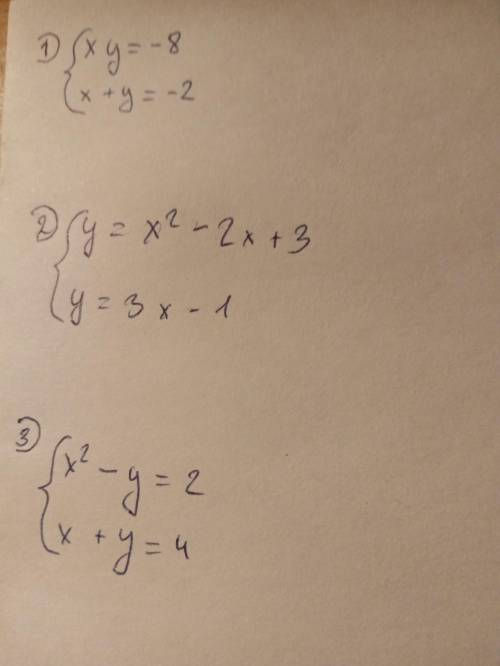 1) { xy = -8
x + y = -2
2) { y = x² - 2x + 3
y = 3x - 1
3) { x² - y = 2
x + y = 4